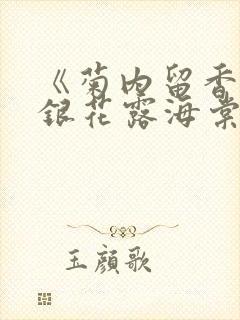 《菊内留香
銀花露海棠
玉顔歌